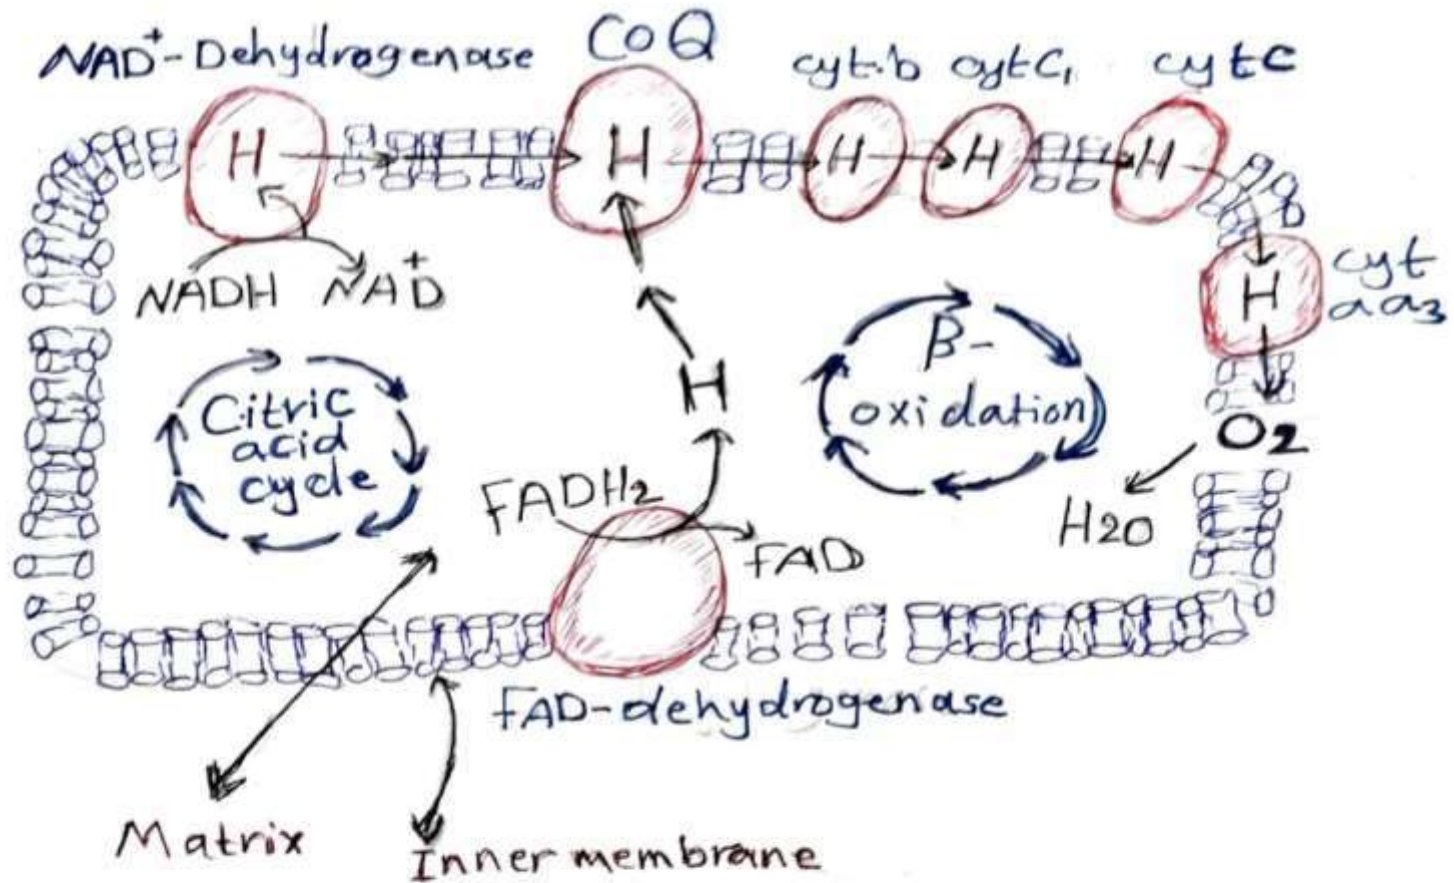 NAD⁺-Dehydrogenase
CoQ
cyt.b
cytC₁
cytC
H
H
H
H
H
NADH
NAD⁺
cyt
aa₃
H
Citric
acid
cycle
H
β-
oxidation
O₂
H2O
FADH₂
FAD
FAD-dehydrogenase
Matrix
Inner membrane